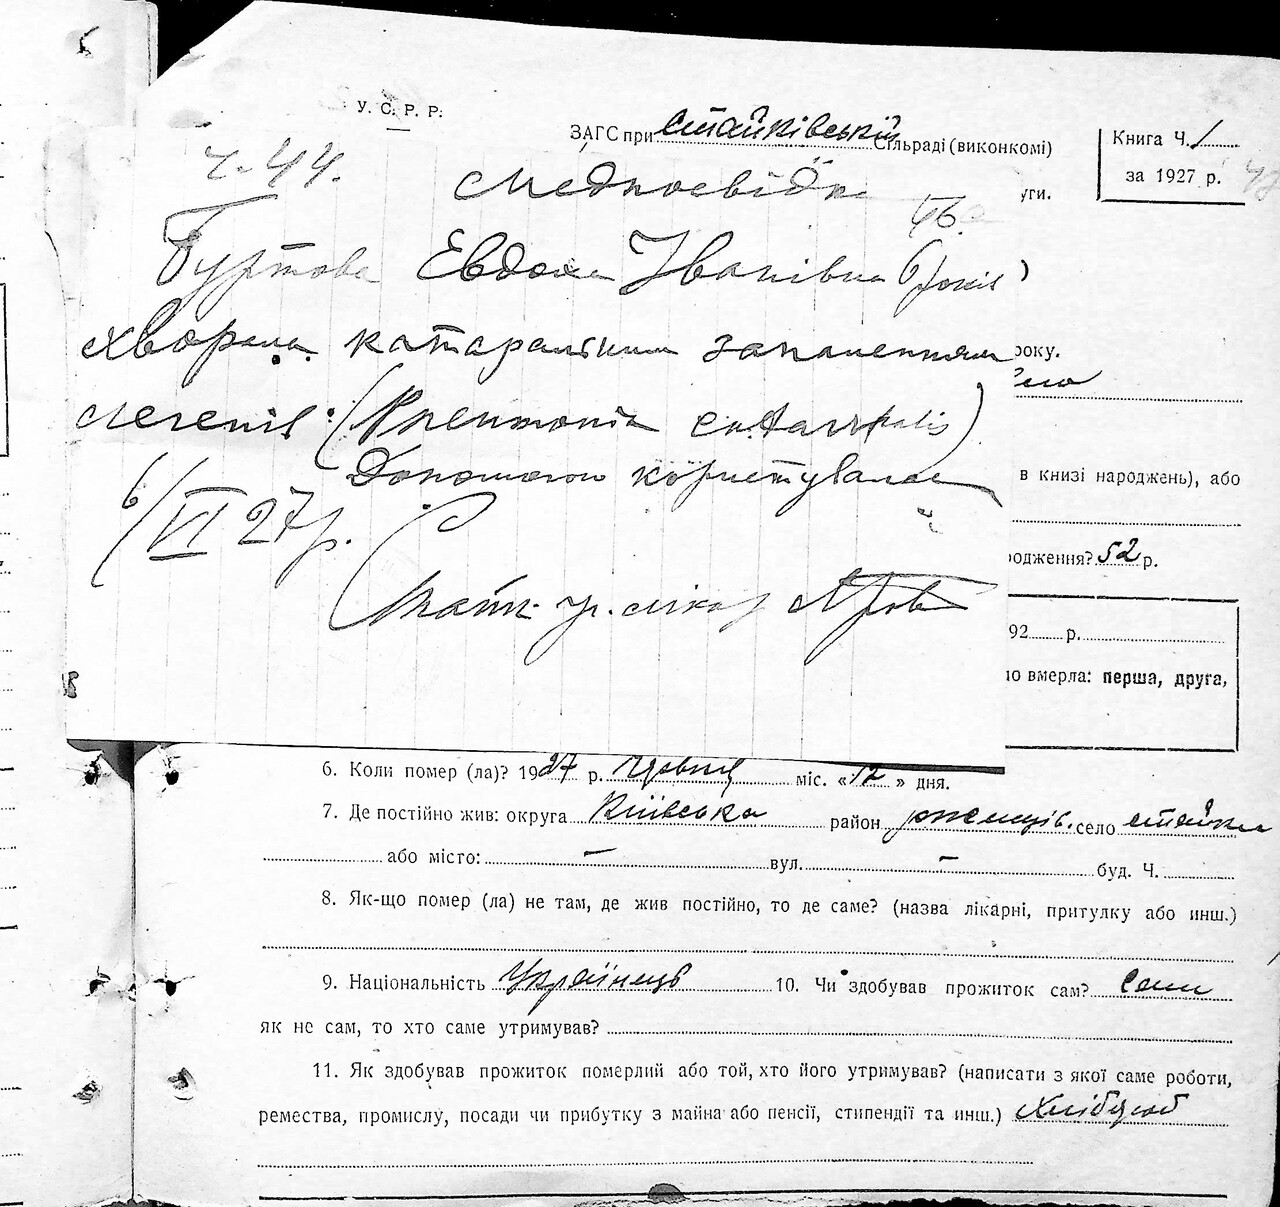 У. С. Р. Р.
ЗАГС при Стайківській Сільраді (виконкомі)
Книга Ч. 1
за 1927 р.
ч. 44.
Медпосвідка
уги.
46
Евдоха Іванівна років)
хворала катаральним запаленням
року.
легенів (Pneumonia catarrhalis)
Допомогою користувалась
в книзі народжень), або
6/VI 27 р.
одження? 52 р.
лікар
92 р.
ло вмерла: перша, друга,
6. Коли помер (ла)? 1927 р. міс. «12» дня.
7. Де постійно жив: округа Київська район ржищів. село стайки
або місто: — вул. — буд. Ч.
8. Як-що помер (ла) не там, де жив постійно, то де саме? (назва лікарні, притулку або инш.)
9. Національність Українець 10. Чи здобував прожиток сам? Сам
як не сам, то хто саме утримував?
11. Як здобував прожиток померлий або той, хто його утримував? (написати з якої саме роботи,
ремества, промислу, посади чи прибутку з майна або пенсії, стипендії та инш.) Хлібороб